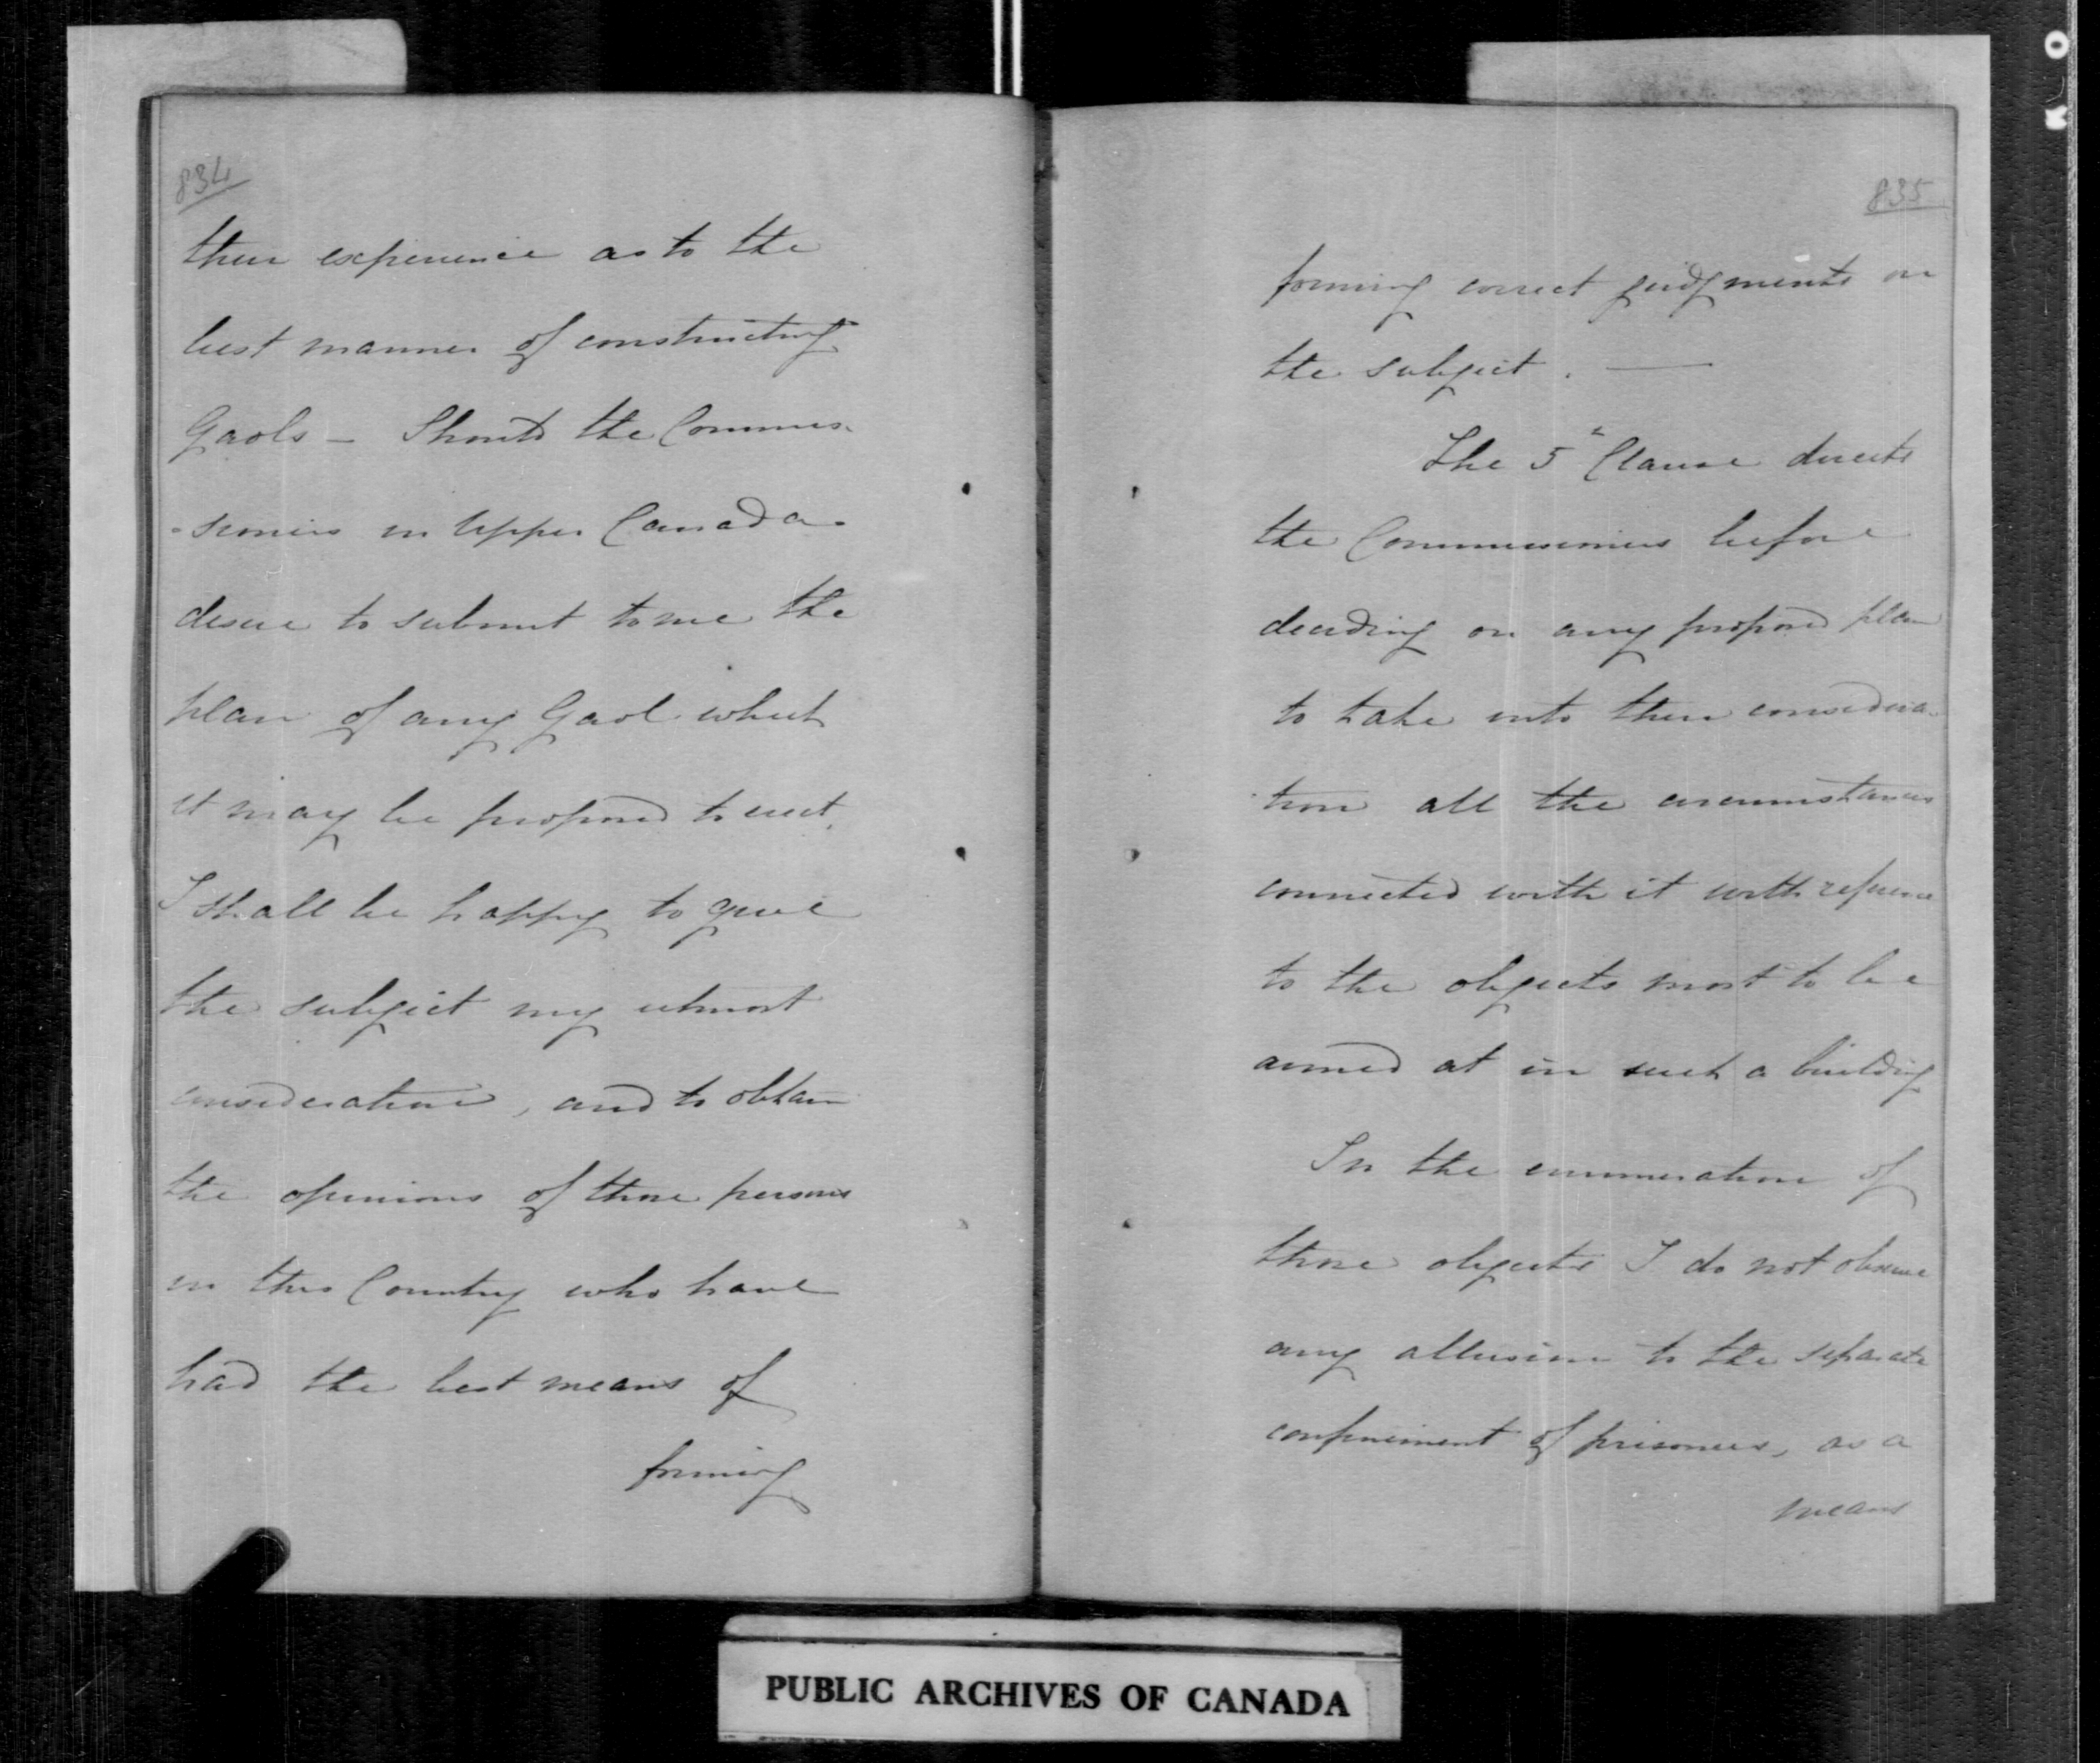 834
their experience as to the
best manner of constructing
Gaols – Should the Commis-
-sioners in Upper Canada
desire to submit to me the
plan of any Gaol which
it may be proposed to erect,
I shall be happy to give
the subject my utmost
consideration, and to obtain
the opinions of those persons
in this Country who have
had the best means of
forming
835
forming correct judgments on
the subject. —
The 5th Clause directs
the Commissioners before
deciding on any proposed plan
to take into their considera-
-tion all the circumstances
connected with it with reference
to the objects most to be
aimed at in such a building
In the enumeration of
those objects I do not observe
any allusion to the separate
confinement of prisoners, as a
means
PUBLIC ARCHIVES OF CANADA